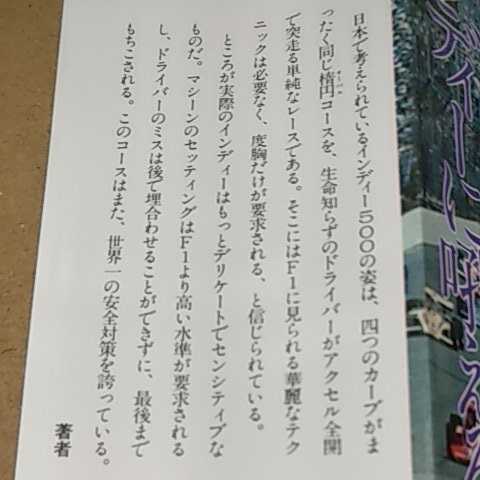 日本で考えられているインディー500の姿は、四つのカーブがま
ったく同じ楕円コースを、生命知らずのドライバーがアクセル全開
で突走る単純なレースである。そこにはF1に見られる華麗なテク
ニックは必要なく、度胸だけが要求される、と信じられている。
ところが実際のインディーはもっとデリケートでセンシティブな
ものだ。マシーンのセッティングはF1より高い水準が要求される
し、ドライバーのミスは後で埋合わせることができずに、最後まで
もちこされる。このコースはまた、世界一の安全対策を誇っている。
著者